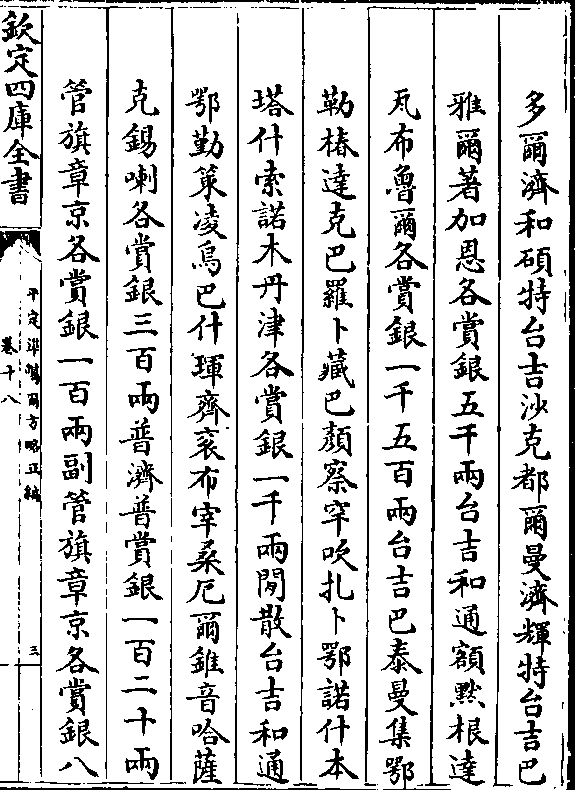 多爾濟和碩特台吉沙克都爾曼濟輝特台吉巴
雅爾著加恩各賞銀五千兩台吉和通額黙根達
瓦布魯爾各賞銀一千五百兩台吉巴泰曼集鄂
勒椿達克巴羅卜藏巴顔察罕吹扎卜鄂諾什本
塔什索諾木丹津各賞銀一千兩閒散台吉和通
鄂勤策凌烏巴什琿齊衮布宰桑厄爾錐音哈薩
克錫喇各賞銀三百兩普濟普賞銀一百二十兩
管旗章京各賞銀一百兩副管旗章京各賞銀八
欽定四庫全書
平定準噶爾方略正編
卷十八
三